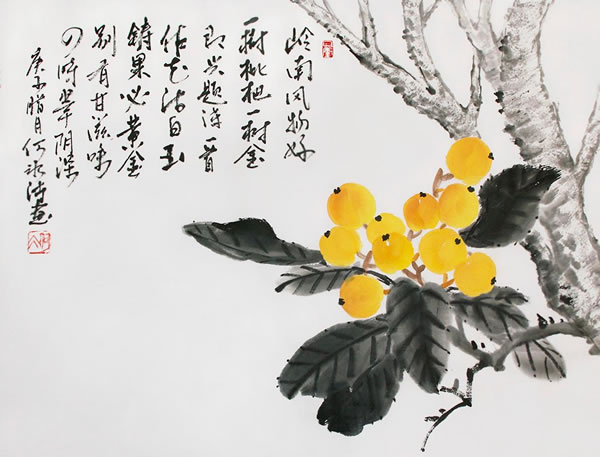 岭南风物好
一树枇杷一树金
即兴题诗一首
作花白玉
铸果必黄金
别有甘滋味
四时翠阴深
庚子腊月何画